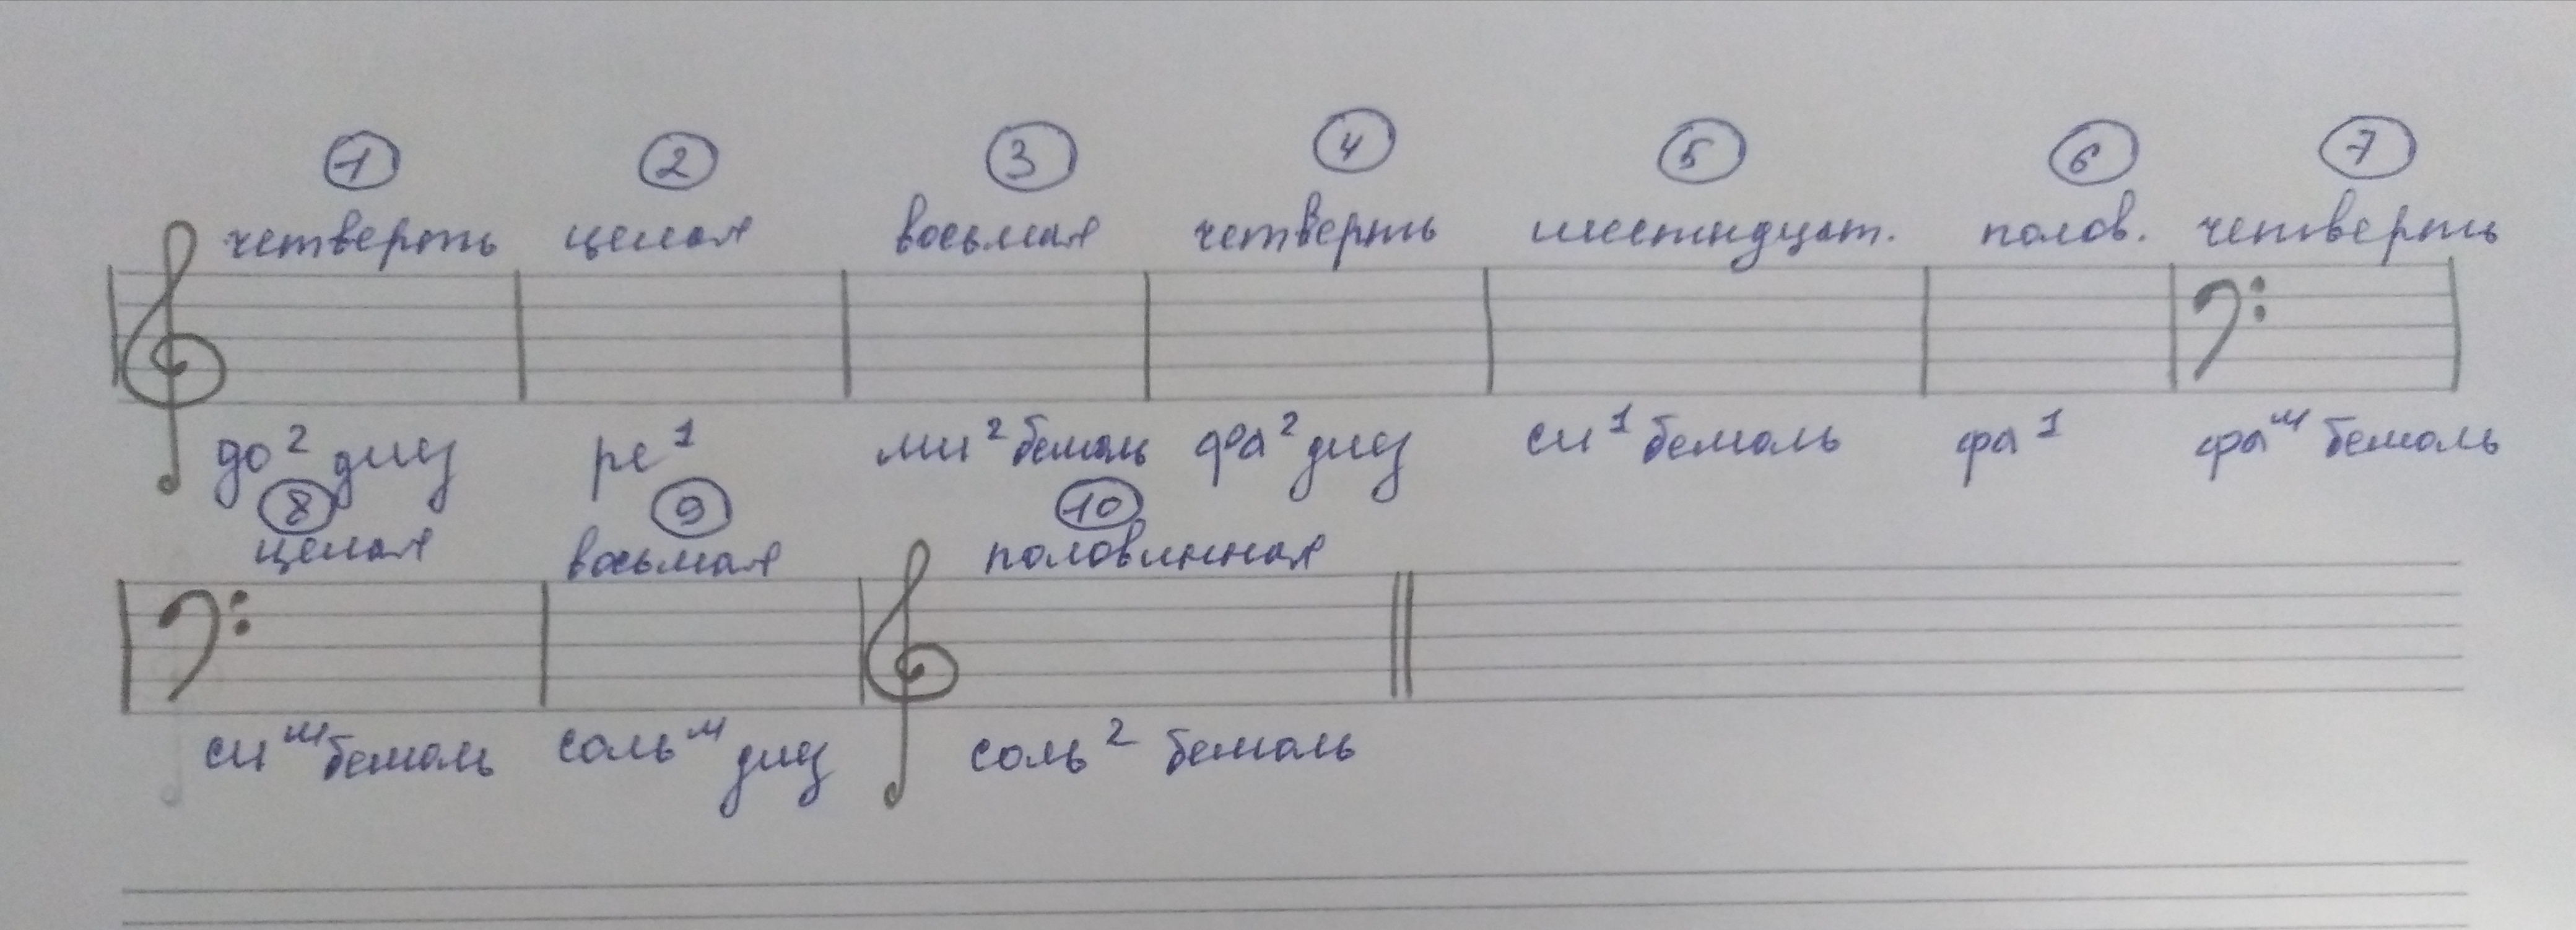 1 2 3 4 5 6 7
четверть целая восьмая четверть шестндцат. полов. четверть
до² диез ре¹ ми² бемоль фа² диез си¹ бемоль фа¹ фаᵐ бемоль
8 9 10
целая восьмая половинная
сиᵐ бемоль сольᵐ диез соль² бемоль